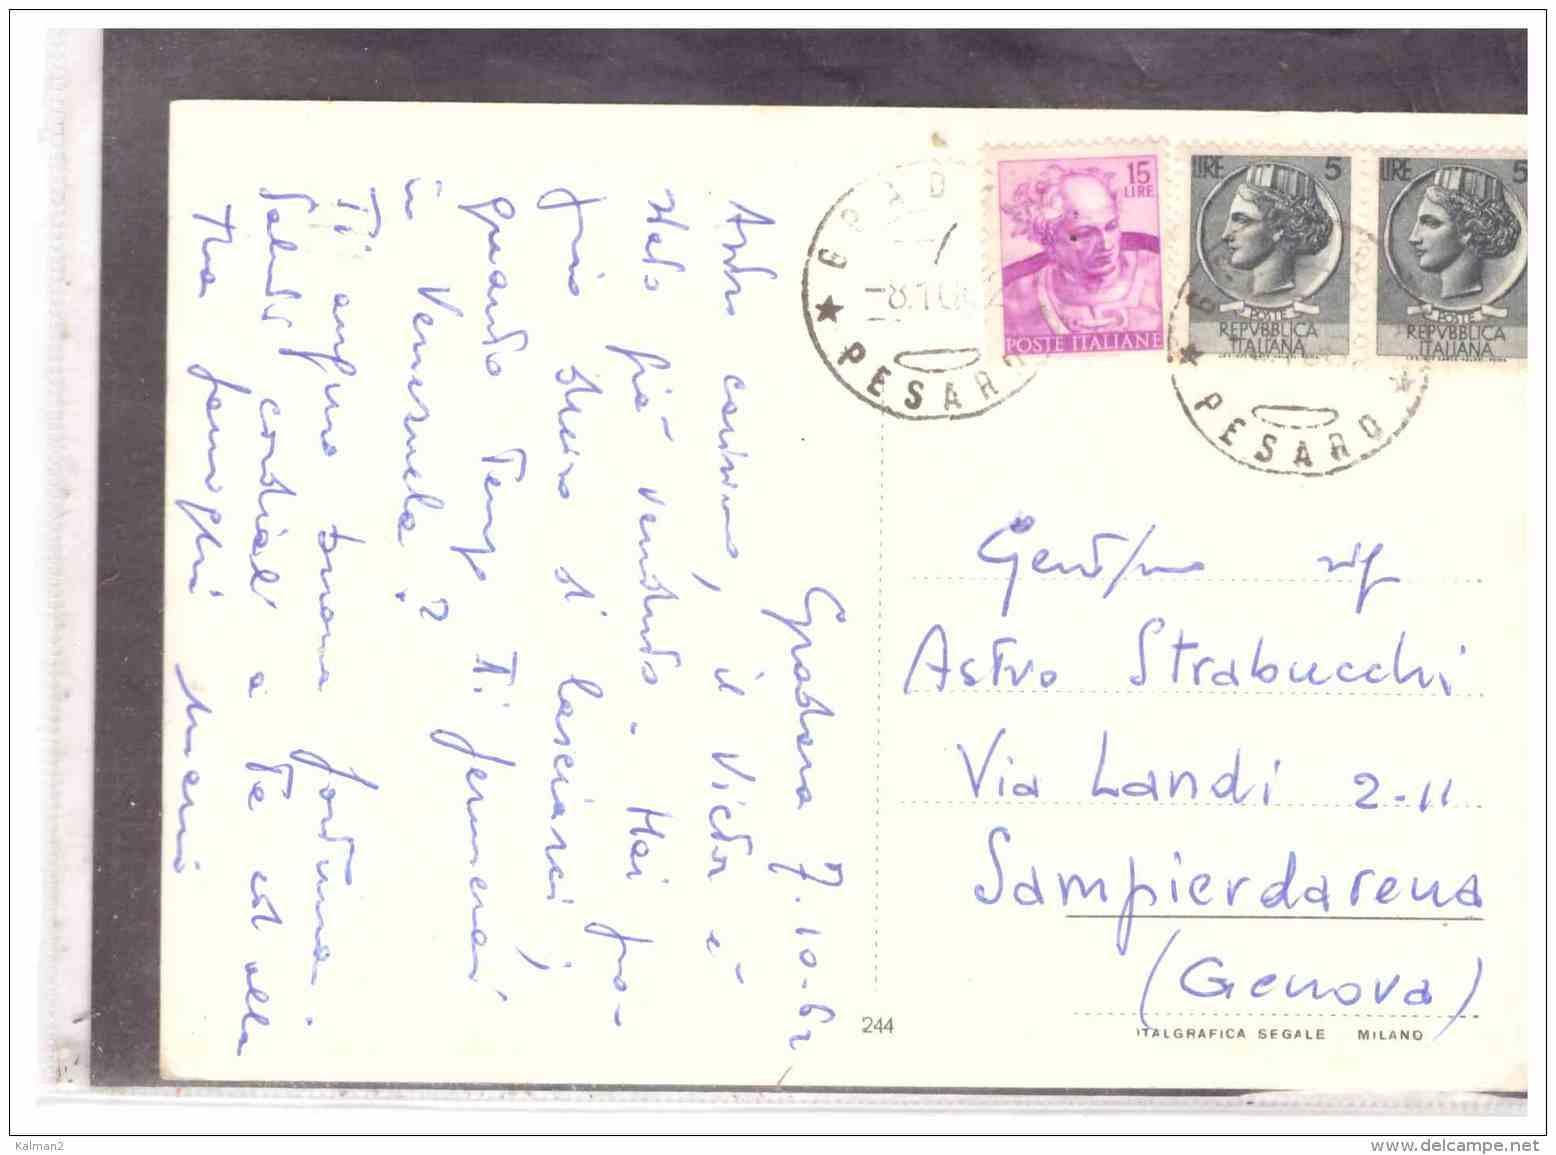 Gradara 7.10.62
Astro carissimo, il Victor è
stato già venduto. Hai pro-
prio deciso di lasciarci,
quanto tempo Ti fermerai
in Venezuela?
Ti auguro buona fortuna.
Saluti cordiali a Te ed alla
tua famiglia
15
LIRE
POSTE ITALIANE
LIRE 5
POSTE
REPVBBLICA
ITALIANA
LIRE 5
POSTE
REPVBBLICA
ITALIANA
PESARO
PESARO
Astro Strabucchi
Via Landi 2-11
Sampierdarena
(Genova)
244
ITALGRAFICA SEGALE MILANO
Kalman2
www.delcampe.net